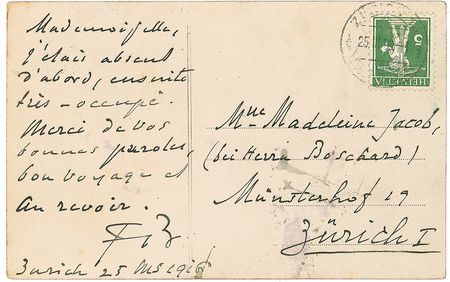 Mademoiselle,
j'étais absent
d'abord, ensuite
très-occupé.
Merci de vos
bonnes paroles,
bon voyage et
au revoir.
Zurich 25 1916
Mlle Madeleine Jacob,
(bei Herrn Boschard)
Münsterhof 19
Zürich I
5
HELVETIA
25.